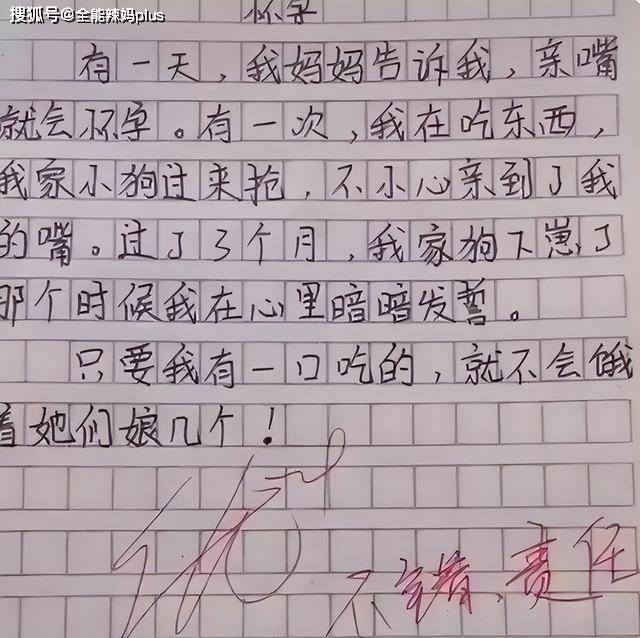 搜狐号@全能辣妈plus
怀孕
有一天，我妈妈告诉我，亲嘴
就会怀孕。有一次，我在吃东西，
我家小狗过来抢，不小心亲到了我
的嘴。过了3个月，我家狗下崽了
那个时候我在心里暗暗发誓。
只要我有一口吃的，就不会饿
着她们娘几个！
不错，责任